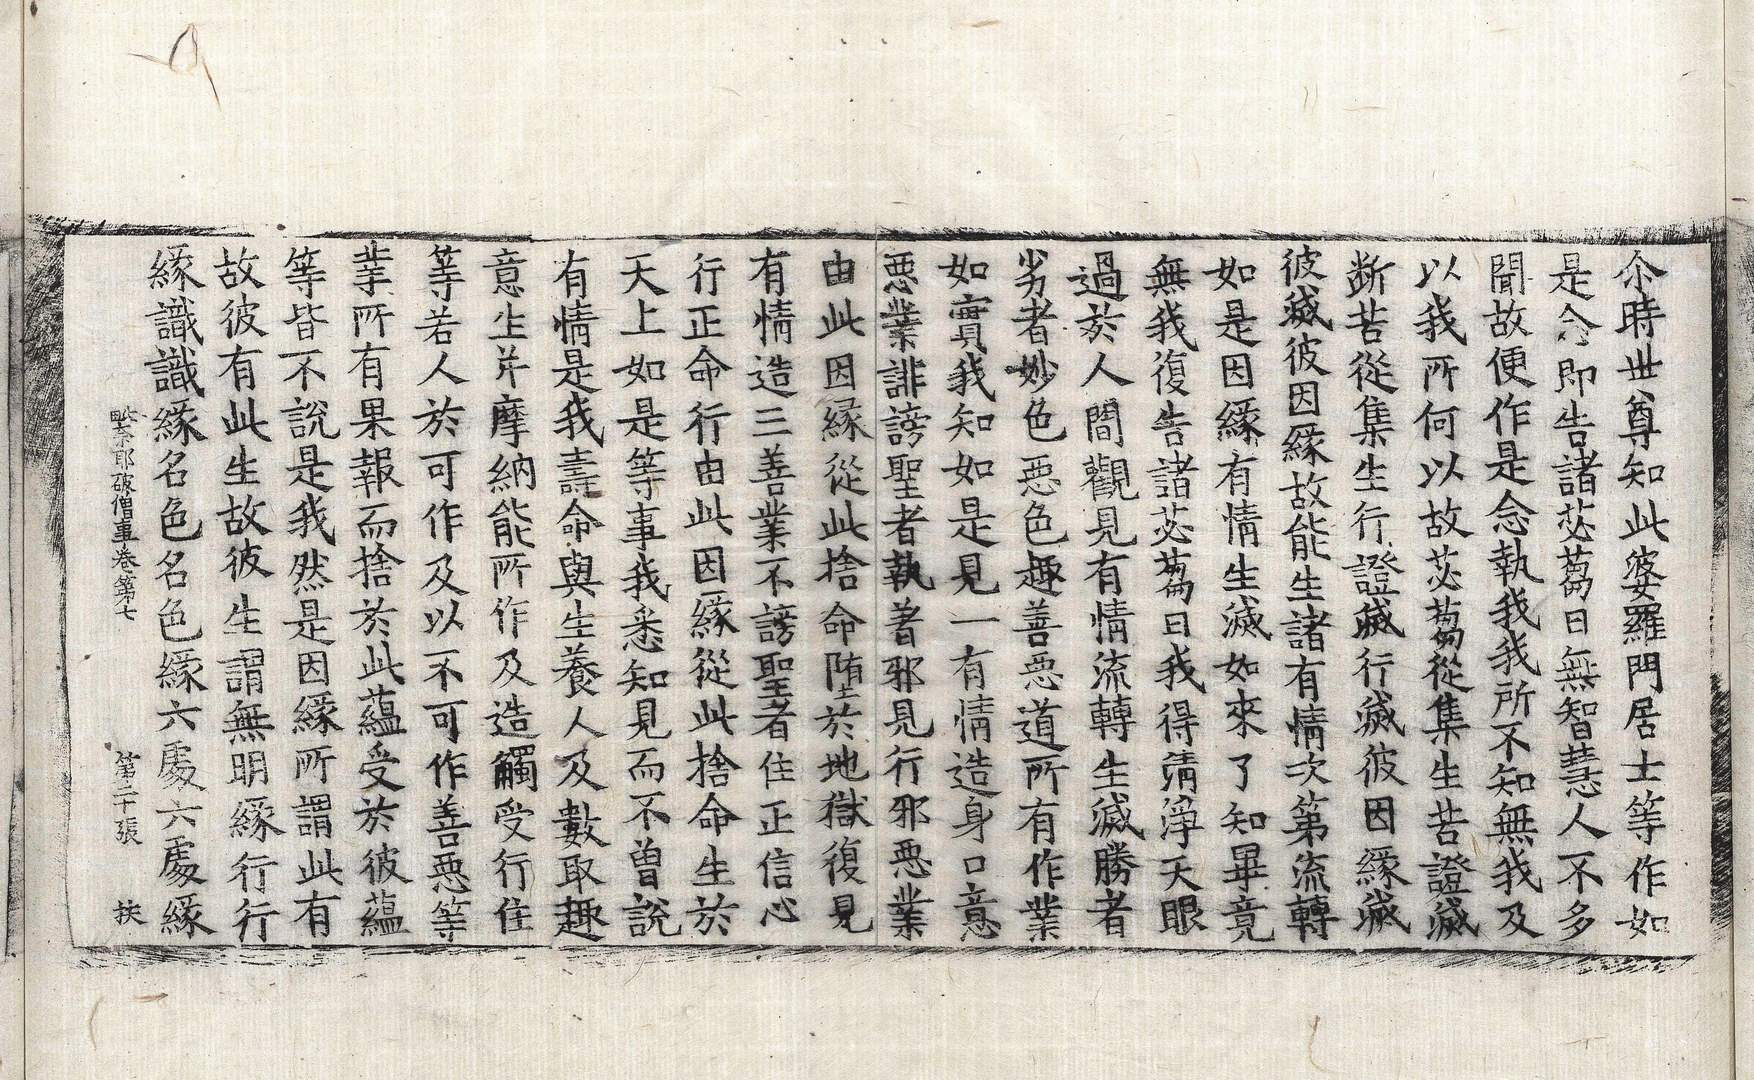 尒時世尊知此婆羅門居士等作如
是念即告諸苾蒭曰無智慧人不多
聞故便作是念執我我所不知無我及
以我所何以故苾蒭從集生苦證滅
断苦從集生行證滅行滅彼因緣滅
彼滅彼因緣故能生諸有情次第流轉
如是因緣有情生滅如來了知畢竟
無我復告諸苾蒭曰我得清淨天眼
過於人間觀見有情流轉生滅勝者
劣者妙色惡色趣善惡道所有作業
如實我知如是見一有情造身口意
惡業誹謗聖者執著邪見行邪惡業
由此因緣從此捨命墮於地獄復見
有情造三善業不謗聖者住正信心
行正命行由此因緣從此捨命生於
天上如是等事我悉知見而不曾說
有情是我壽命與生養人及數取趣
意生并摩納能所作及造觸受行住
等若人於可作及以不可作善惡等
業所有果報而捨於此蘊受於彼蘊
等皆不說是我然是因緣所謂此有
故彼有此生故彼生謂無明緣行行
緣識識緣名色名色緣六處六處緣
毗奈耶破僧事卷第七 第二十張 扶